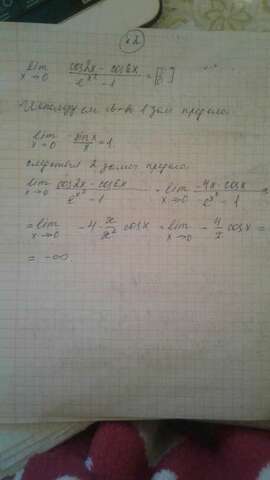 №2
lim x→0 (cos2x - cos6x)/(e^{x²} - 1) = [0/0]
Используем 1 зам предела.
lim x→0 sin x / x = 1
2 замеч предела.
lim x→0 (cos2x - cos6x)/(e^{x²} - 1) = lim x→0 (-4x · cosx)/(e^{x²} - 1) =
= lim x→0 -4 · x/x² cosx = lim x→0 -4/x cosx =
= -∞